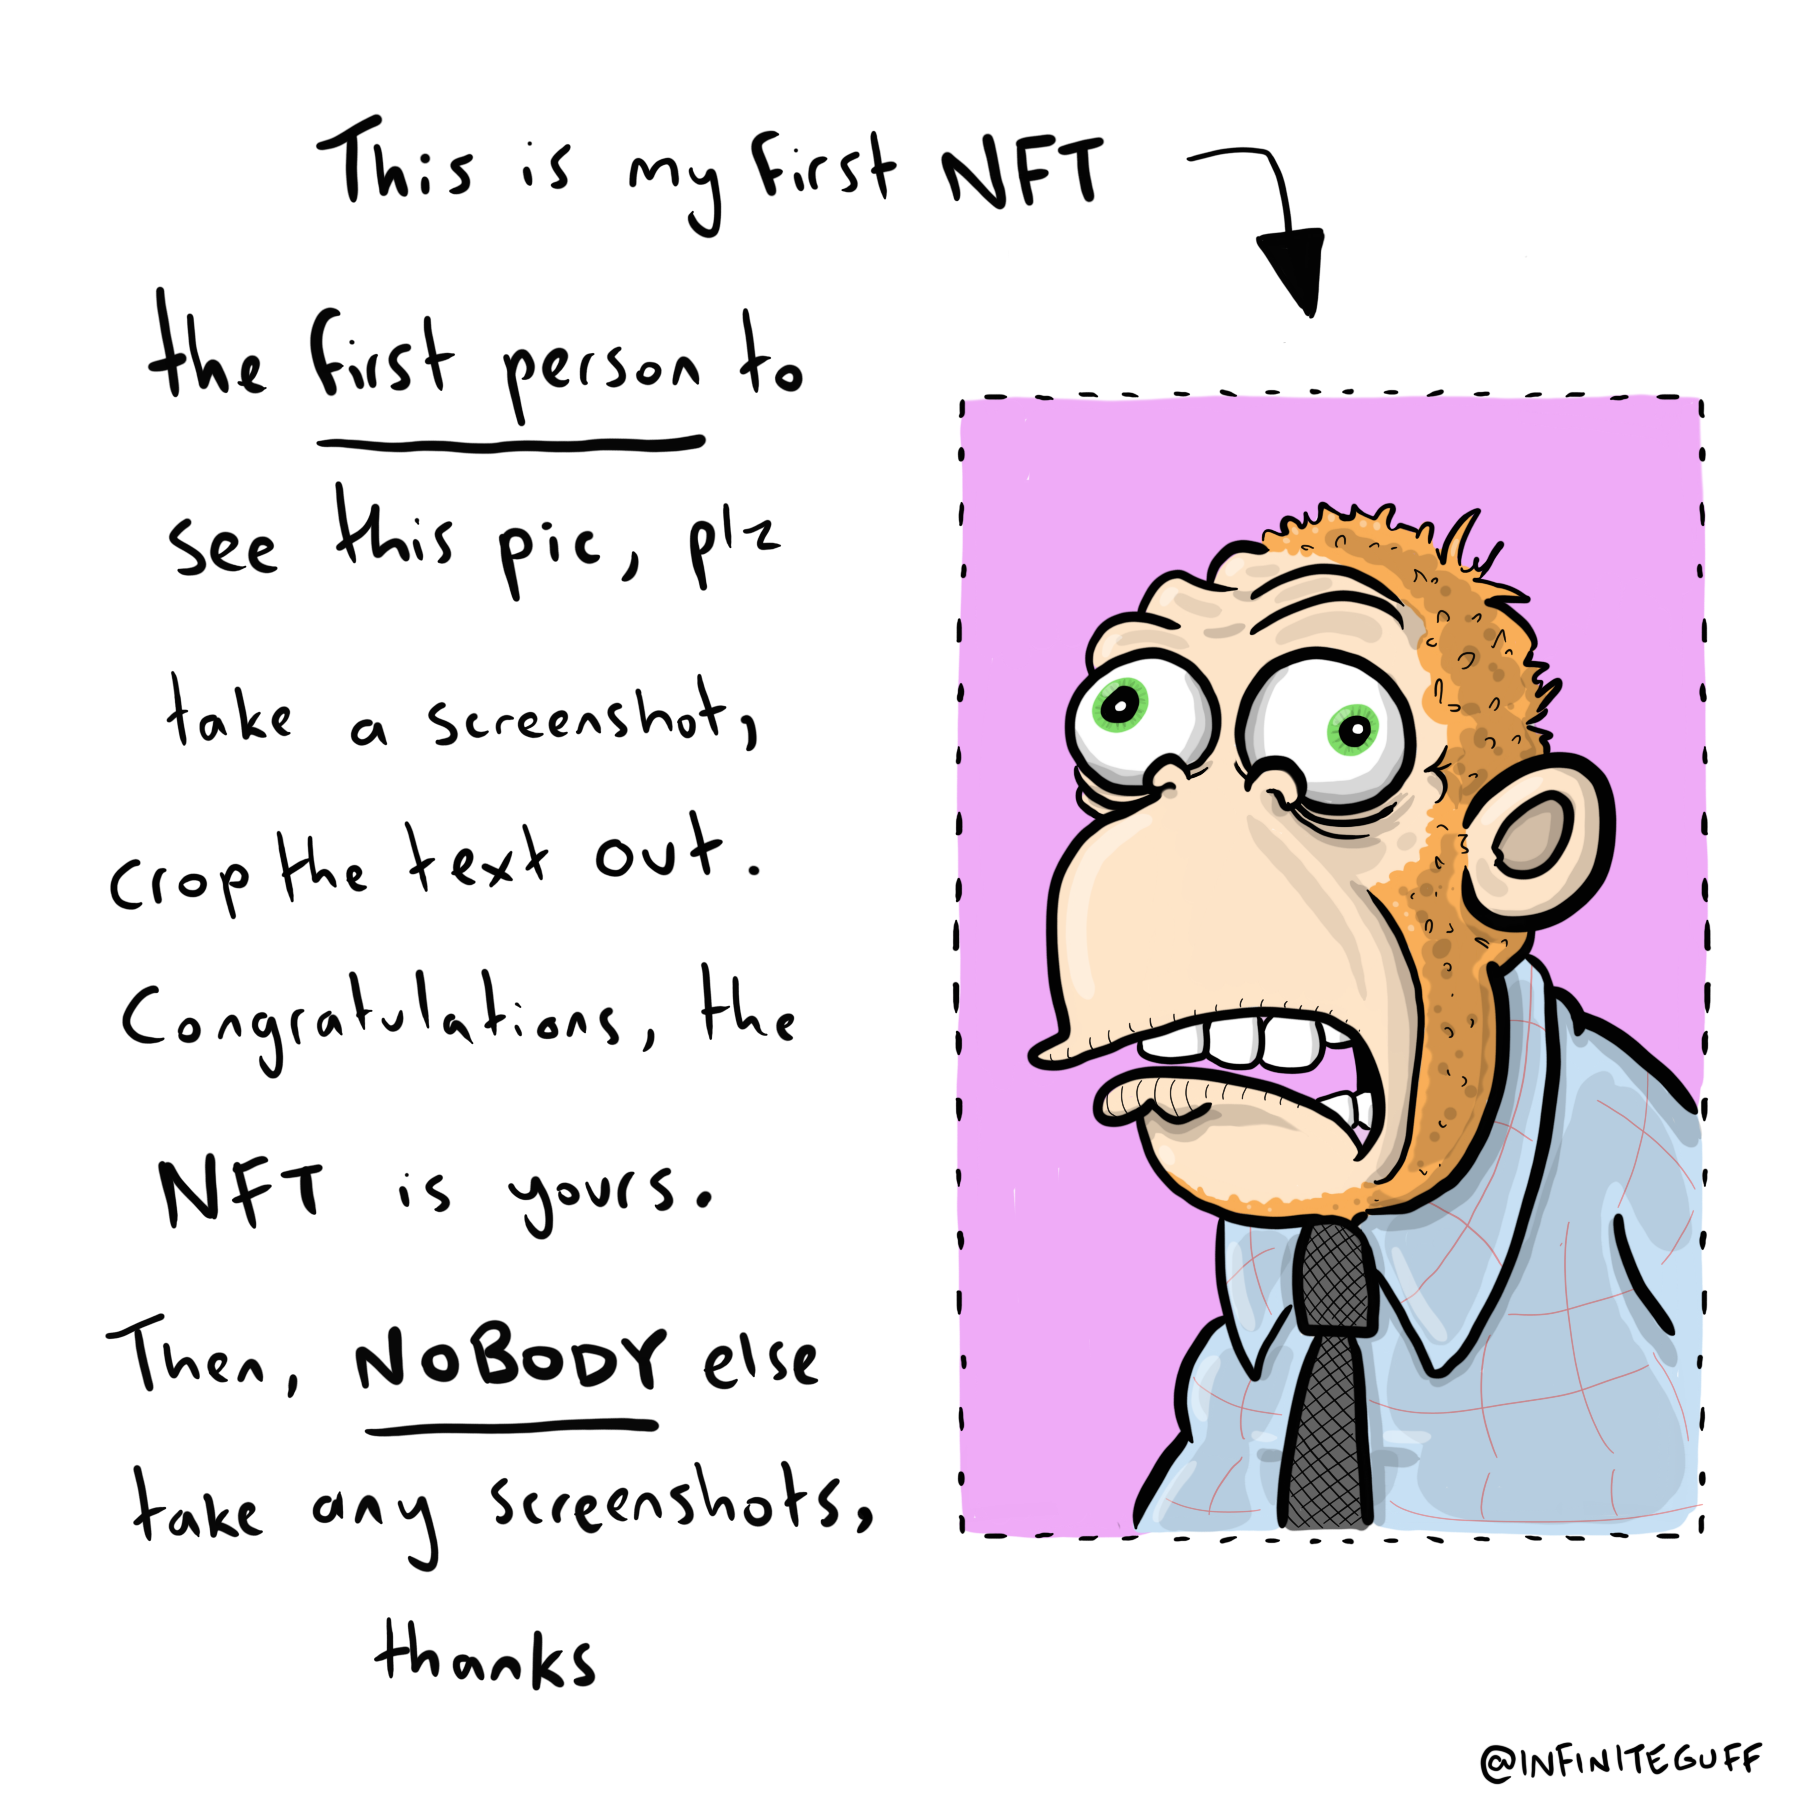 This is my first NFT
the first person to
see this pic, plz
take a screenshot,
crop the text out.
Congratulations, the
NFT is yours.
Then, NOBODY else
take any screenshots,
thanks
@INFINITEGUFF